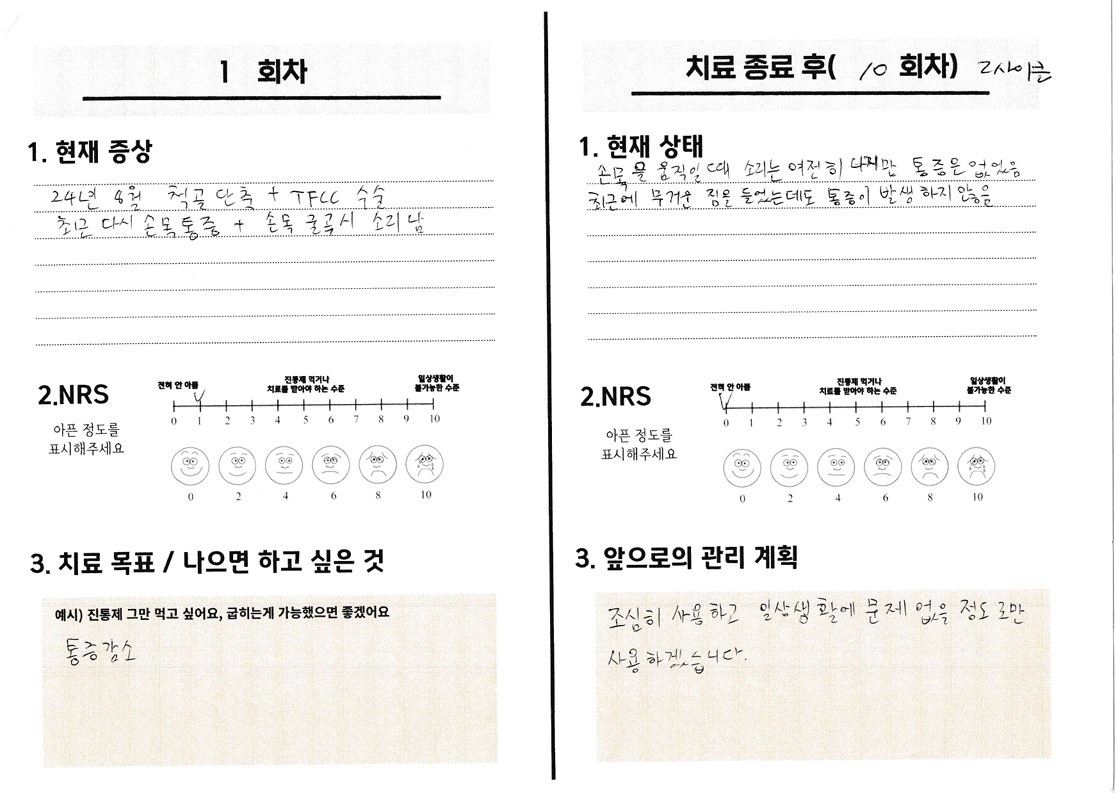 1 회차
1. 현재 증상
24년 8월 척골 단축 + TFCC 수술
최근 다시 손목통증 + 손목 굴곡시 소리 남
2.NRS
아픈 정도를
표시해주세요
전혀 안 아픔
진통제 먹거나
치료를 받아야 하는 수준
일상생활이
불가능한 수준
0 1 2 3 4 5 6 7 8 9 10
0 2 4 6 8 10
3. 치료 목표 / 나으면 하고 싶은 것
예시) 진통제 그만 먹고 싶어요, 굽히는게 가능했으면 좋겠어요
통증감소
치료 종료 후( 10 회차) 2사이클
1. 현재 상태
손목을 움직일 때 소리는 여전히 나지만 통증은 없었음
최근에 무거운 짐을 들었는데도 통증이 발생하지 않음
2.NRS
아픈 정도를
표시해주세요
전혀 안 아픔
진통제 먹거나
치료를 받아야 하는 수준
일상생활이
불가능한 수준
0 1 2 3 4 5 6 7 8 9 10
0 2 4 6 8 10
3. 앞으로의 관리 계획
조심히 사용하고 일상생활에 문제 없을 정도로만
사용하겠습니다.